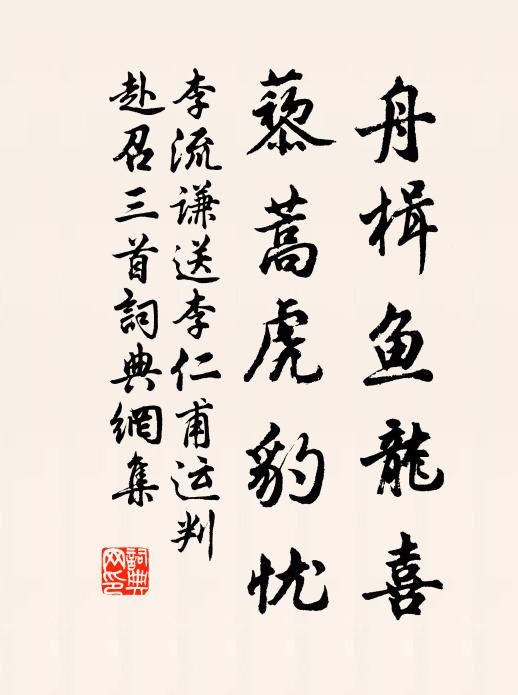 舟楫鱼龍喜
藜蒿虎豹忧
李流谦送李仁甫运判
赴召三首詞典網集
詞典网印